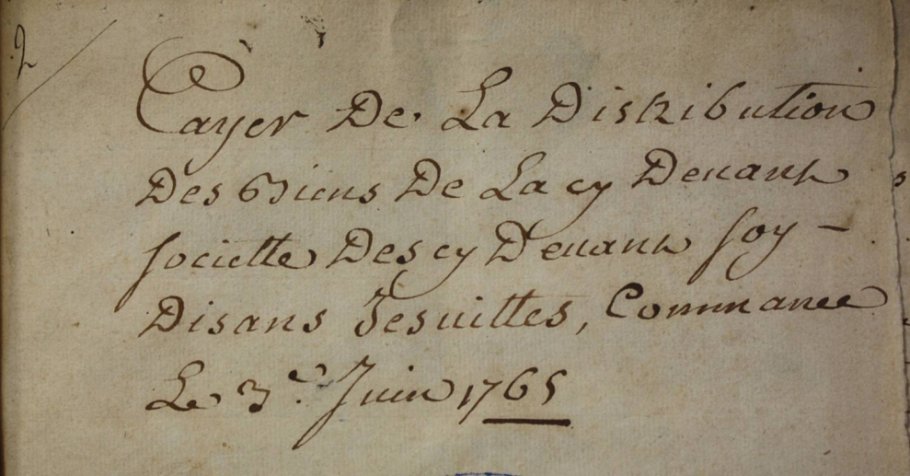 2
Cayer De La Distribution
Des Biens De La cy Devant
Societte Des cy Devant soy -
Disans Jesuittes, Commancé
Le 3.e Juin 1765